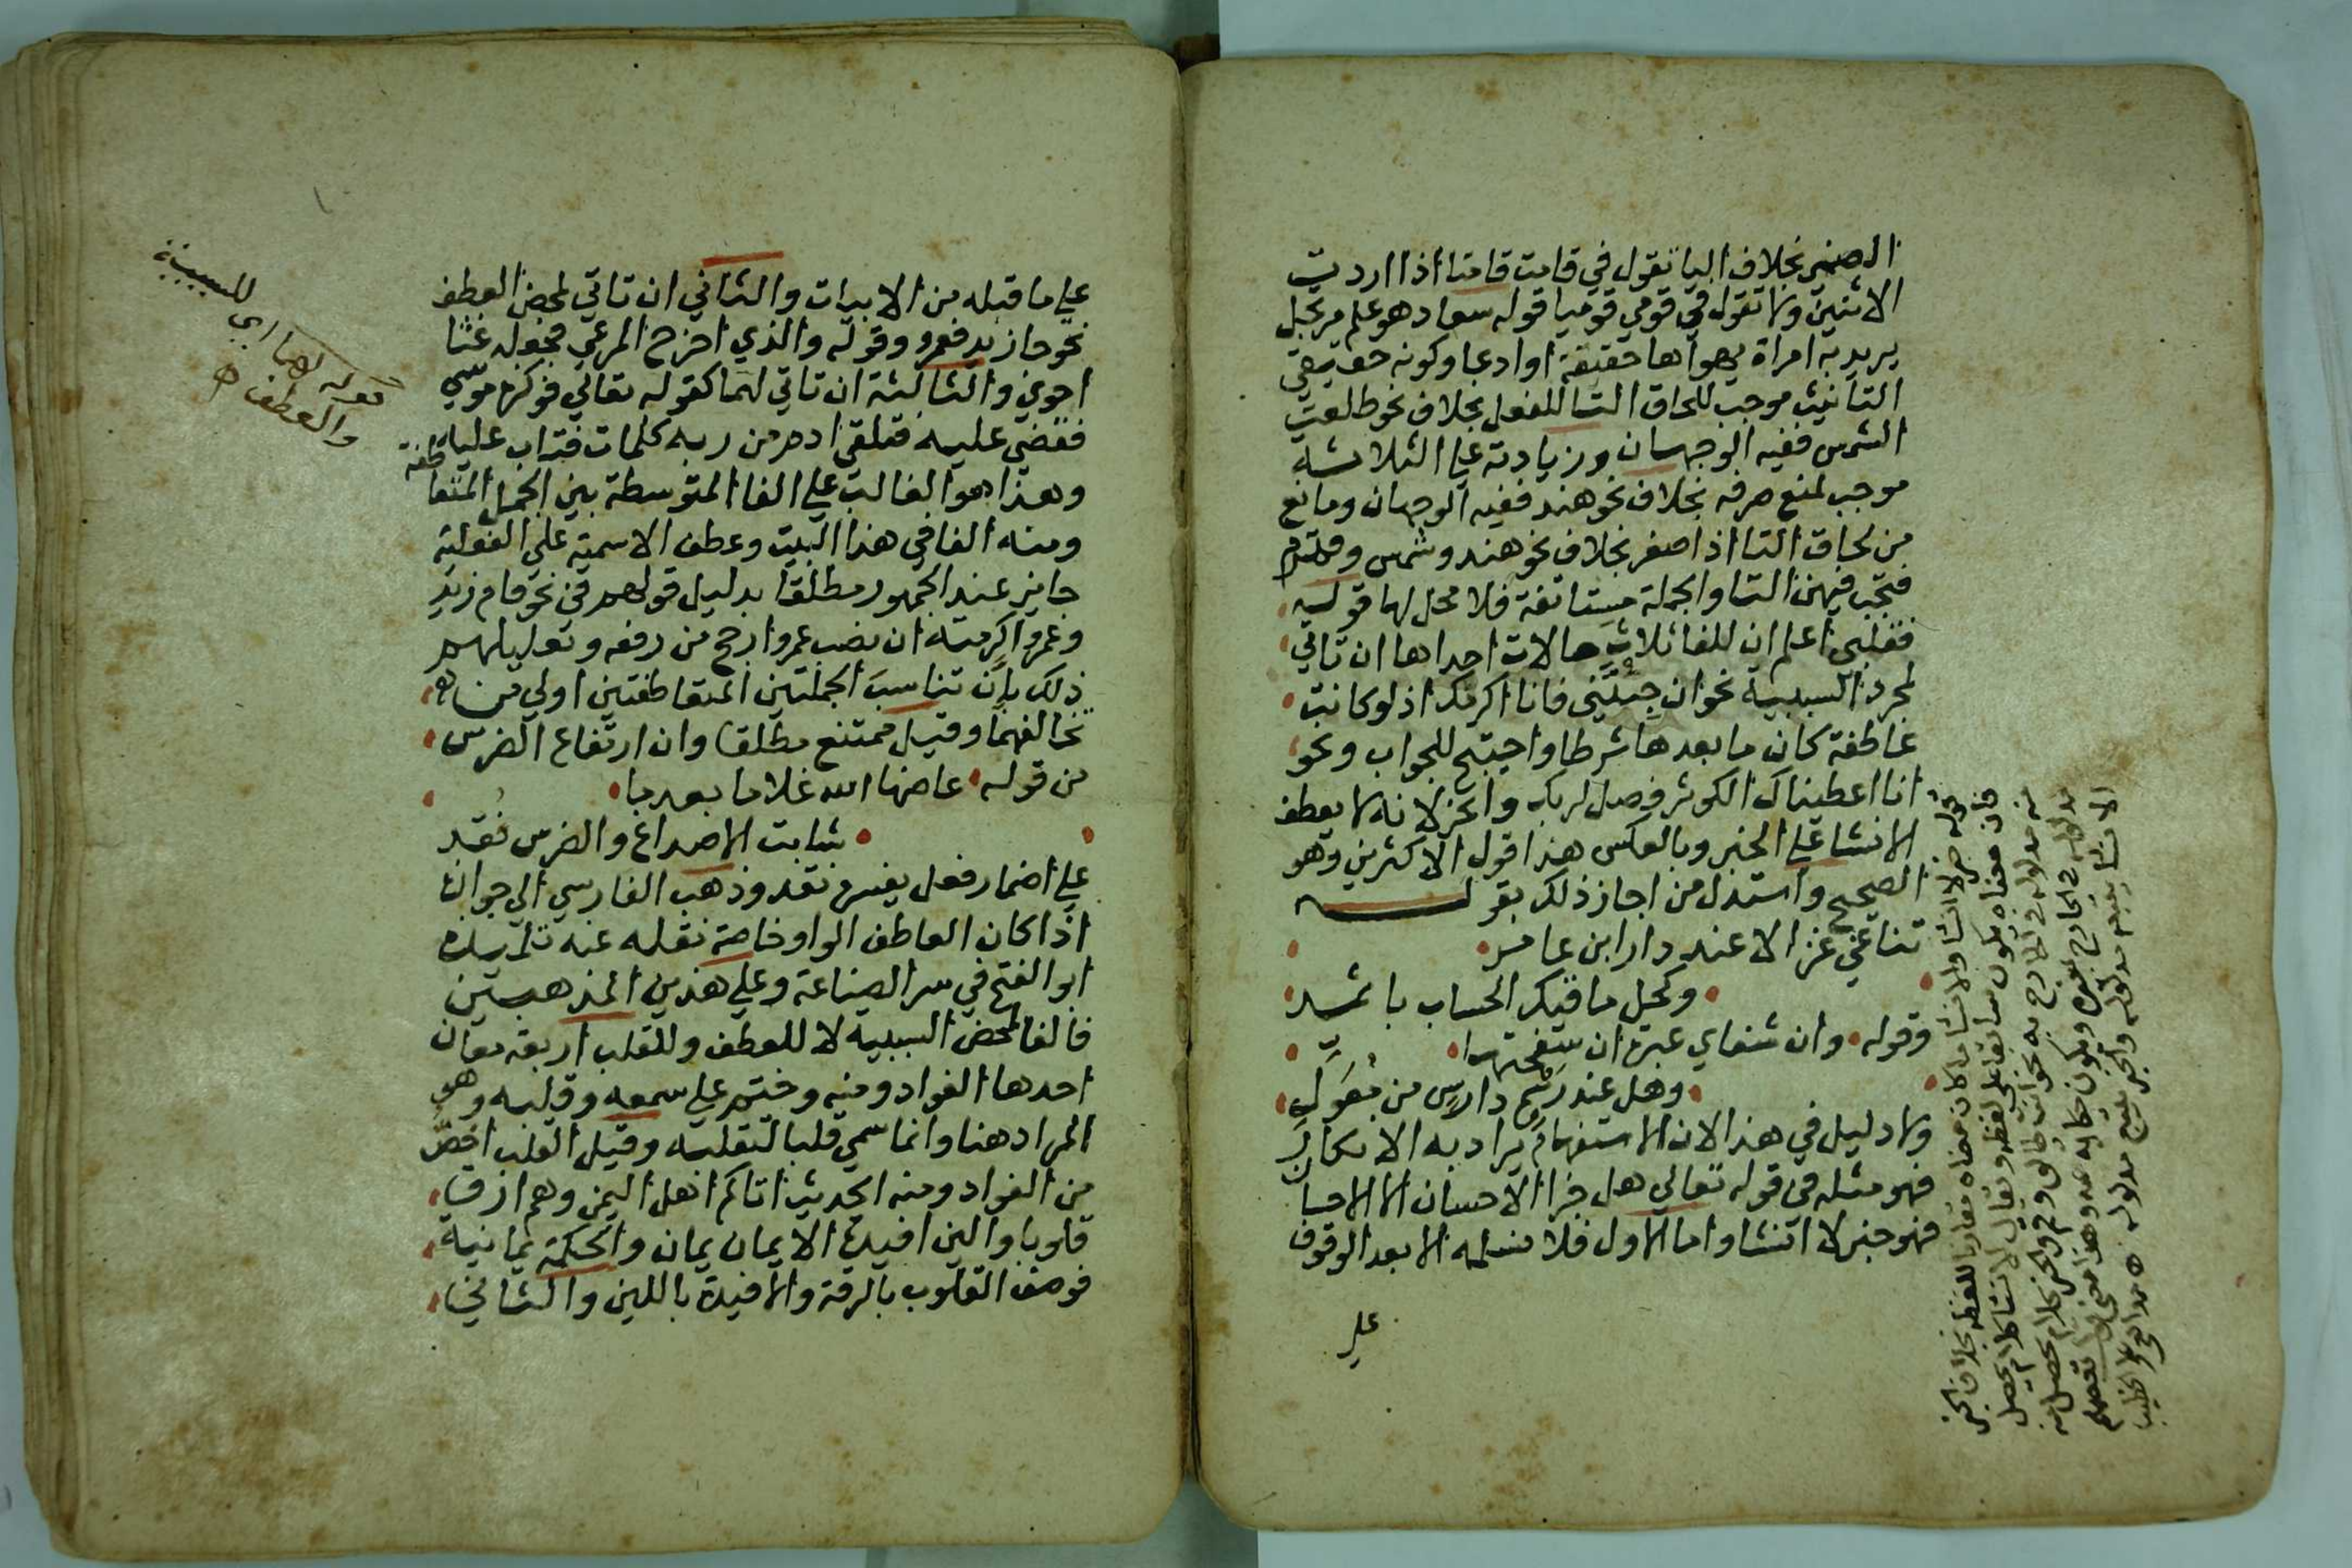 الضمير بخلاف اليا تقول في قامت قامتا اذا اردت
الاثنين ولا تقول في قومي قوميا قوله سعاد هو علم مرتجل
يريد به امراة يهواها حقيقة او ادعا وكونه حقيقي
التانيث موجب للحاق التا للفعل بخلاف نحو طلعت
الشمس ففيه الوجهان وزيادته علي الثلاثة
موجب لمنع صرفه بخلاف نحو هند ففيه الوجهان ومانع
من لحاق التا اذا صغر بخلاف نحو هند وشمس وقدم
فتجب فيهن التا والجملة مستانفة فلا محل لها قوله
فقلبي اعلم ان للفا ثلاث حالات احداها ان تاتي
لمجرد السببية نحو ان جئتني فانا اكرمك اذ لو كانت
عاطفة كان ما بعدها شرطا واحتيج للجواب ونحو
انا اعطيناك الكوثر فصل لربك وانحر لانه لا يعطف
الانشا علي الخبر وبالعكس هذا قول الاكثرين وهو
الصحيح واستدل من اجاز ذلك بقوله
تناغي غزالا عند دار ابن عامر
وكحل ماقيك الحسان باثمد
وقوله وان شفاي عبرة ان سفحتها
وهل عند رسم دارس من معول
ولا دليل في هذا لان الاستفهام يراد به الانكار
فهو مثله في قوله تعالي هل جزا الاحسان الا الاحسان
فهو خبر لا انشا واما الاول فلا نسلمه الا بعد الوقوف
علي
قوله خبر لا انشا والانشا ما كان معناه مقارنا للفظه بخلاف الخبر
فان معناه يكون سابقا علي لفظه ويقال الانشا كلام يحصل
مدلوله في الخارج به نحو انت طالق وقم والخبر كلام يحصل
مدلوله في الخارج بغيره ويكون حكاية عنه وهذا معني قولهم
الانشا يتبعه مدلوله والخبر يتبع مدلوله
علي ما قبله من الابيات والثاني ان تاتي لمحض العطف
نحو جا زيد فعمرو وقوله والذي اخرج المرعي فجعله غثا
احوي والثالثة ان تاتي لهما كقوله تعالي فوكزه موسي
فقضي عليه فتلقي ادم من ربه كلمات فتاب عليه
وهذا هو الغالب علي الفا المتوسطة بين الجمل المتعاطفة
ومنه الفا في هذا البيت وعطف الاسمية علي الفعلية
جايز عند الجمهور مطلقا بدليل قولهم في نحو قام زيد
وعمرا اكرمته ان نصب عمرو ارجح من رفعه وتعليلهم
ذلك بان تناسب الجملتين المتعاطفتين اولي من
تخالفهما وقيل ممتنع مطلقا وان ارتفاع الضرس
من قوله عاضها الله غلاما بعد ما
شابت الاصداغ والضرس نقد
علي اضمار فعل يفسره نقد وذهب الفارسي الي جوازه
اذا كان العاطف الواو خاصة نقله عنه تلميذه
ابو الفتح في سر الصناعة وعلي هذين المذهبين
فالفا لمحض السببية لا للعطف وللقلب اربعة معان
احدها الفواد ومنه وختم علي سمعه وقلبه وهو
المراد هنا وانما سمي قلبا لتقلبه وقيل القلب اخص
من الفواد ومنه الحديث اتاكم اهل اليمن وهم ارق
قلوبا والين افيدة الايمان يمان والحكمة يمانية
فوصف القلوب بالرقة والافيدة باللين والثاني
قوله لهما اي للسببية
والعطف